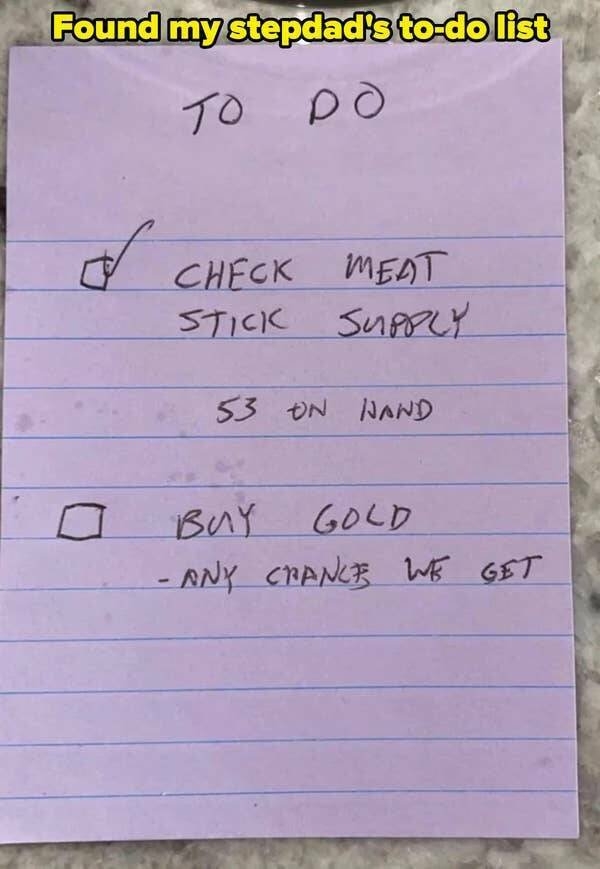 Found my stepdad's to-do list
TO DO
CHECK MEAT
STICK SUPPLY
53 ON HAND
BUY GOLD
- ANY CHANCE WE GET